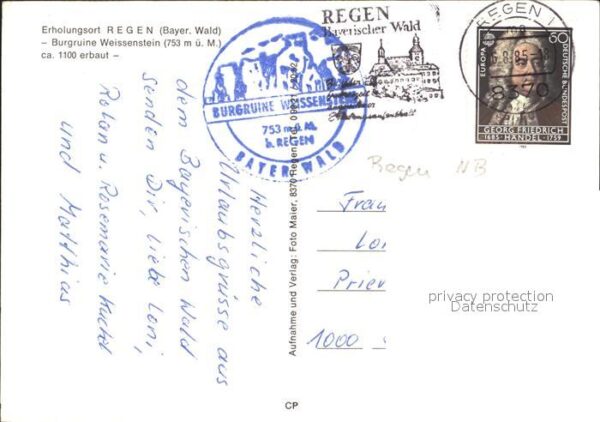 Erholungsort REGEN (Bayer. Wald)
– Burgruine Weissenstein (753 m ü. M.)
ca. 1100 erbaut –
BURGRUINE WEISSENSTEIN
753 m ü. M.
b. REGEN
BAYER. WALD
REGEN
Bayerischer Wald
REGEN 1
8370
60
EUROPA
DEUTSCHE BUNDESPOST
GEORG FRIEDRICH
1685 HÄNDEL 1759
Regen NB
Herzliche
Urlaubsgrüsse aus
dem Bayerischen Wald
senden Dir, liebe Loni,
Rosemarie
und Matthias
Aufnahme und Verlag: Foto Maier, 8370 Regen
Frau
Lo
Prie
1000
privacy protection
Datenschutz
CP